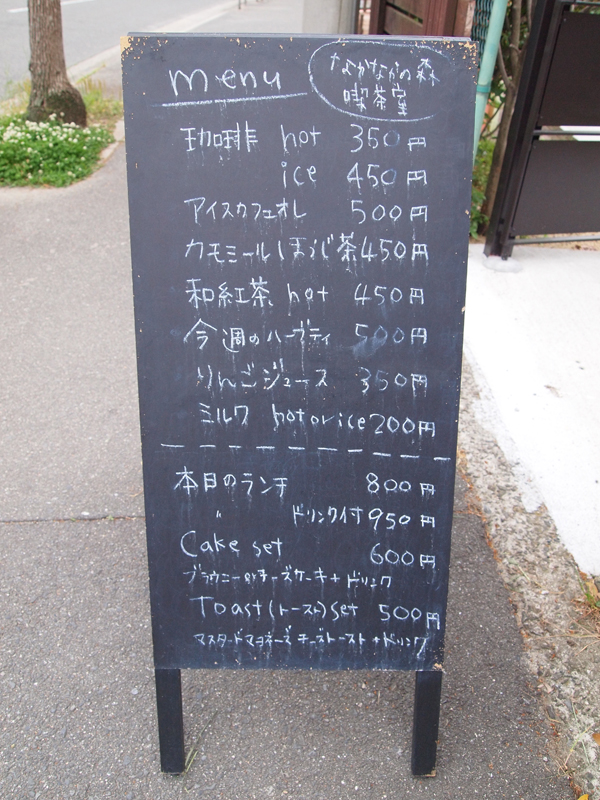 menu
なかなかの森
喫茶室
珈琲 hot 350円
ice 450円
アイスカフェオレ 500円
カモミールほうじ茶 450円
和紅茶 hot 450円
今週のハーブティ 500円
りんごジュース 350円
ミルク hot or ice 200円
本日のランチ 800円
〃 ドリンク付 950円
Cake set 600円
ブラウニー or チーズケーキ + ドリンク
Toast (トースト) set 500円
マスタードマヨネーズ チーズトースト + ドリンク